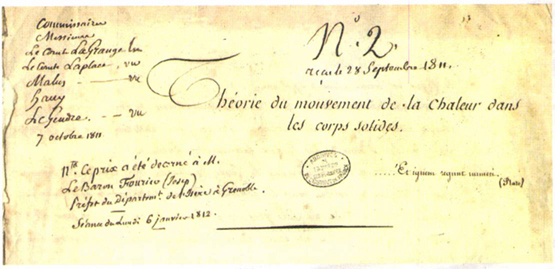 Commissaires
Messieurs
Le Comte LaGrange lu
Le Comte Laplace, vu
Malus —— vu
Hauy
LeGendre. —— vu
7 octobre 1811
N.° 2.
reçu le 28 Septembre 1811.
Théorie du mouvement de la Chaleur dans
les corps solides.
N.ta Ce prix a été décerné à M.
Le Baron Fourier (Josep)
Préfet du Départem.t de l'Isère à Grenoble.
Séance du Lundi 6 janvier 1812.
.....Et ignem regunt numeri.
(Plato)